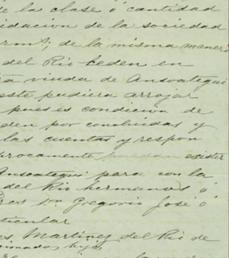 de la clase ó cantidad
idacion de la sociedad
de la misma manera
del Rio ceden en
viuda de Ansoategui
este pudiera arrojar
pues és condicion de
den por concluidas y
las cuentas y respon
procamente puedan existir
Ansoategui para con la
del Rio hermanos ó
Don Gregorio José ó
ticular
Martinez del Rio de